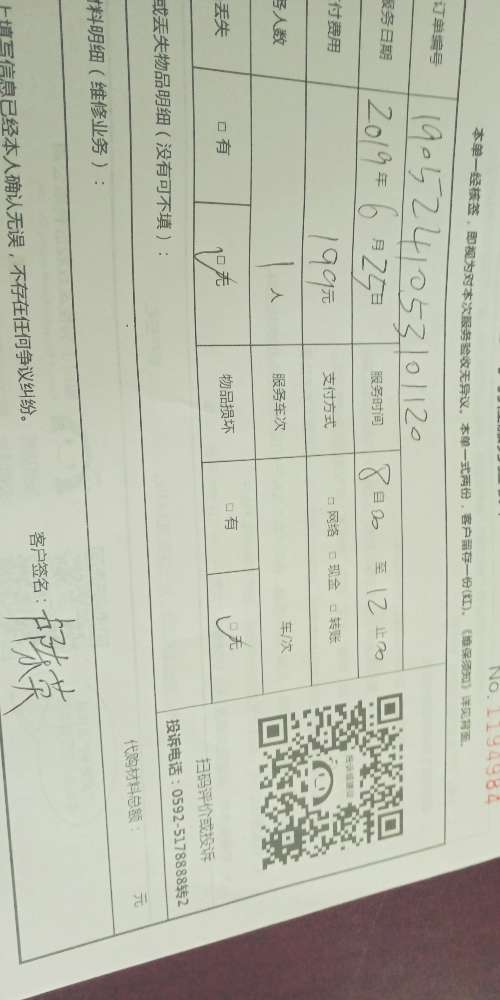 No.1194984
本单一经核签，即视为对本次服务验收无异议。本单一式两份，客户留存一份(红)。《维保须知》详见背面。
订单编号 19052410531 01120
服务日期 2019年6月25日 服务时间 8:00 至 12:00 止
付费用 199元 支付方式 □网络 □现金 □转账
务人数 1人 服务车次 车/次
丢失 □有 □无 物品损坏 □有 □无
或丢失物品明细（没有可不填）：
扫码评价或投诉
投诉电话：0592-5178888转2
材料明细（维修业务）：
代购材料总额： 元
上填写信息已经本人确认无误，不存在任何争议纠纷。
客户签名：